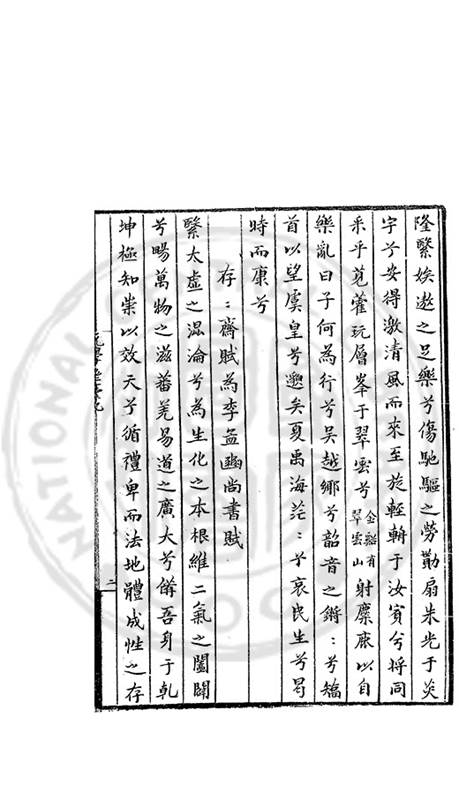 隆繄娭遨之足樂兮傷馳驅之勞勩扇朱光于炎
宇兮安得激清風而來至於輕輈于汝賓兮將同
采乎芄藿玩層峯于翠雲兮金谿有翠雲山射麋鹿以自
樂亂曰子何為行兮吳越鄉兮韶音之鏘：兮稽
首以望虞皇兮邈矣夏禹海茫：兮哀民生兮曷
時而康兮
存：齋賦為李孟豳尚書賦
繄太虛之混淪兮為生化之本根維二氣之闔闢
兮暢萬物之滋蕃羌易道之廣大兮備吾身于乾
坤極知崇以效天兮循禮卑而法地體成性之存
二
NATIONAL